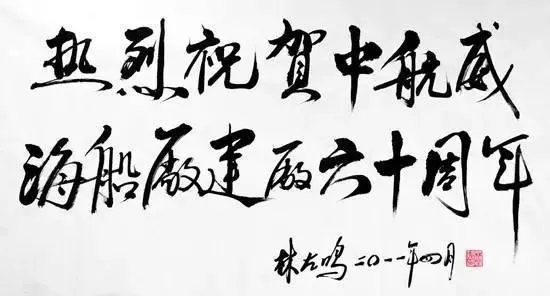 热烈祝賀中航威
海船廠建廠六十周年
林左鸣 二〇一一年四月